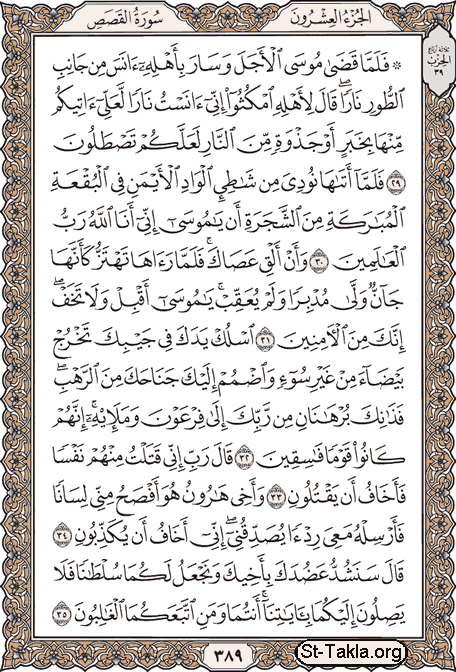 سُورَةُ القَصَصِ الجُزْءُ العِشْرُونَ
ثلاثة أرباع
الحزب
٣٩
۞ فَلَمَّا قَضَىٰ مُوسَى ٱلْأَجَلَ وَسَارَ بِأَهْلِهِۦٓ ءَانَسَ مِن جَانِبِ
ٱلطُّورِ نَارًاۖ قَالَ لِأَهْلِهِ ٱمْكُثُوٓا۟ إِنِّىٓ ءَانَسْتُ نَارًا لَّعَلِّىٓ ءَاتِيكُم
مِّنْهَا بِخَبَرٍ أَوْ جَذْوَةٍ مِّنَ ٱلنَّارِ لَعَلَّكُمْ تَصْطَلُونَ
٢٩ فَلَمَّآ أَتَىٰهَا نُودِىَ مِن شَٰطِئِ ٱلْوَادِ ٱلْأَيْمَنِ فِى ٱلْبُقْعَةِ
ٱلْمُبَٰرَكَةِ مِنَ ٱلشَّجَرَةِ أَن يَٰمُوسَىٰٓ إِنِّىٓ أَنَا ٱللَّهُ رَبُّ
ٱلْعَٰلَمِينَ ٣٠ وَأَنْ أَلْقِ عَصَاكَۖ فَلَمَّا رَءَاهَا تَهْتَزُّ كَأَنَّهَا
جَآنٌّ وَلَّىٰ مُدْبِرًا وَلَمْ يُعَقِّبْۚ يَٰمُوسَىٰٓ أَقْبِلْ وَلَا تَخَفْۖ
إِنَّكَ مِنَ ٱلْءَامِنِينَ ٣١ ٱسْلُكْ يَدَكَ فِى جَيْبِكَ تَخْرُجْ
بَيْضَآءَ مِنْ غَيْرِ سُوٓءٍ وَٱضْمُمْ إِلَيْكَ جَنَاحَكَ مِنَ ٱلرَّهْبِۖ
فَذَٰنِكَ بُرْهَٰنَانِ مِن رَّبِّكَ إِلَىٰ فِرْعَوْنَ وَمَلَإِي۟هِۦٓۚ إِنَّهُمْ
كَانُوا۟ قَوْمًا فَٰسِقِينَ ٣٢ قَالَ رَبِّ إِنِّى قَتَلْتُ مِنْهُمْ نَفْسًا
فَأَخَافُ أَن يَقْتُلُونِ ٣٣ وَأَخِى هَٰرُونُ هُوَ أَفْصَحُ مِنِّى لِسَانًا
فَأَرْسِلْهُ مَعِىَ رِدْءًا يُصَدِّقُنِىٓۖ إِنِّىٓ أَخَافُ أَن يُكَذِّبُونِ ٣٤
قَالَ سَنَشُدُّ عَضُدَكَ بِأَخِيكَ وَنَجْعَلُ لَكُمَا سُلْطَٰنًا فَلَا
يَصِلُونَ إِلَيْكُمَاۚ بِـَٔايَٰتِنَآ أَنتُمَا وَمَنِ ٱتَّبَعَكُمَا ٱلْغَٰلِبُونَ ٣٥
٣٨٩
St-Takla.org